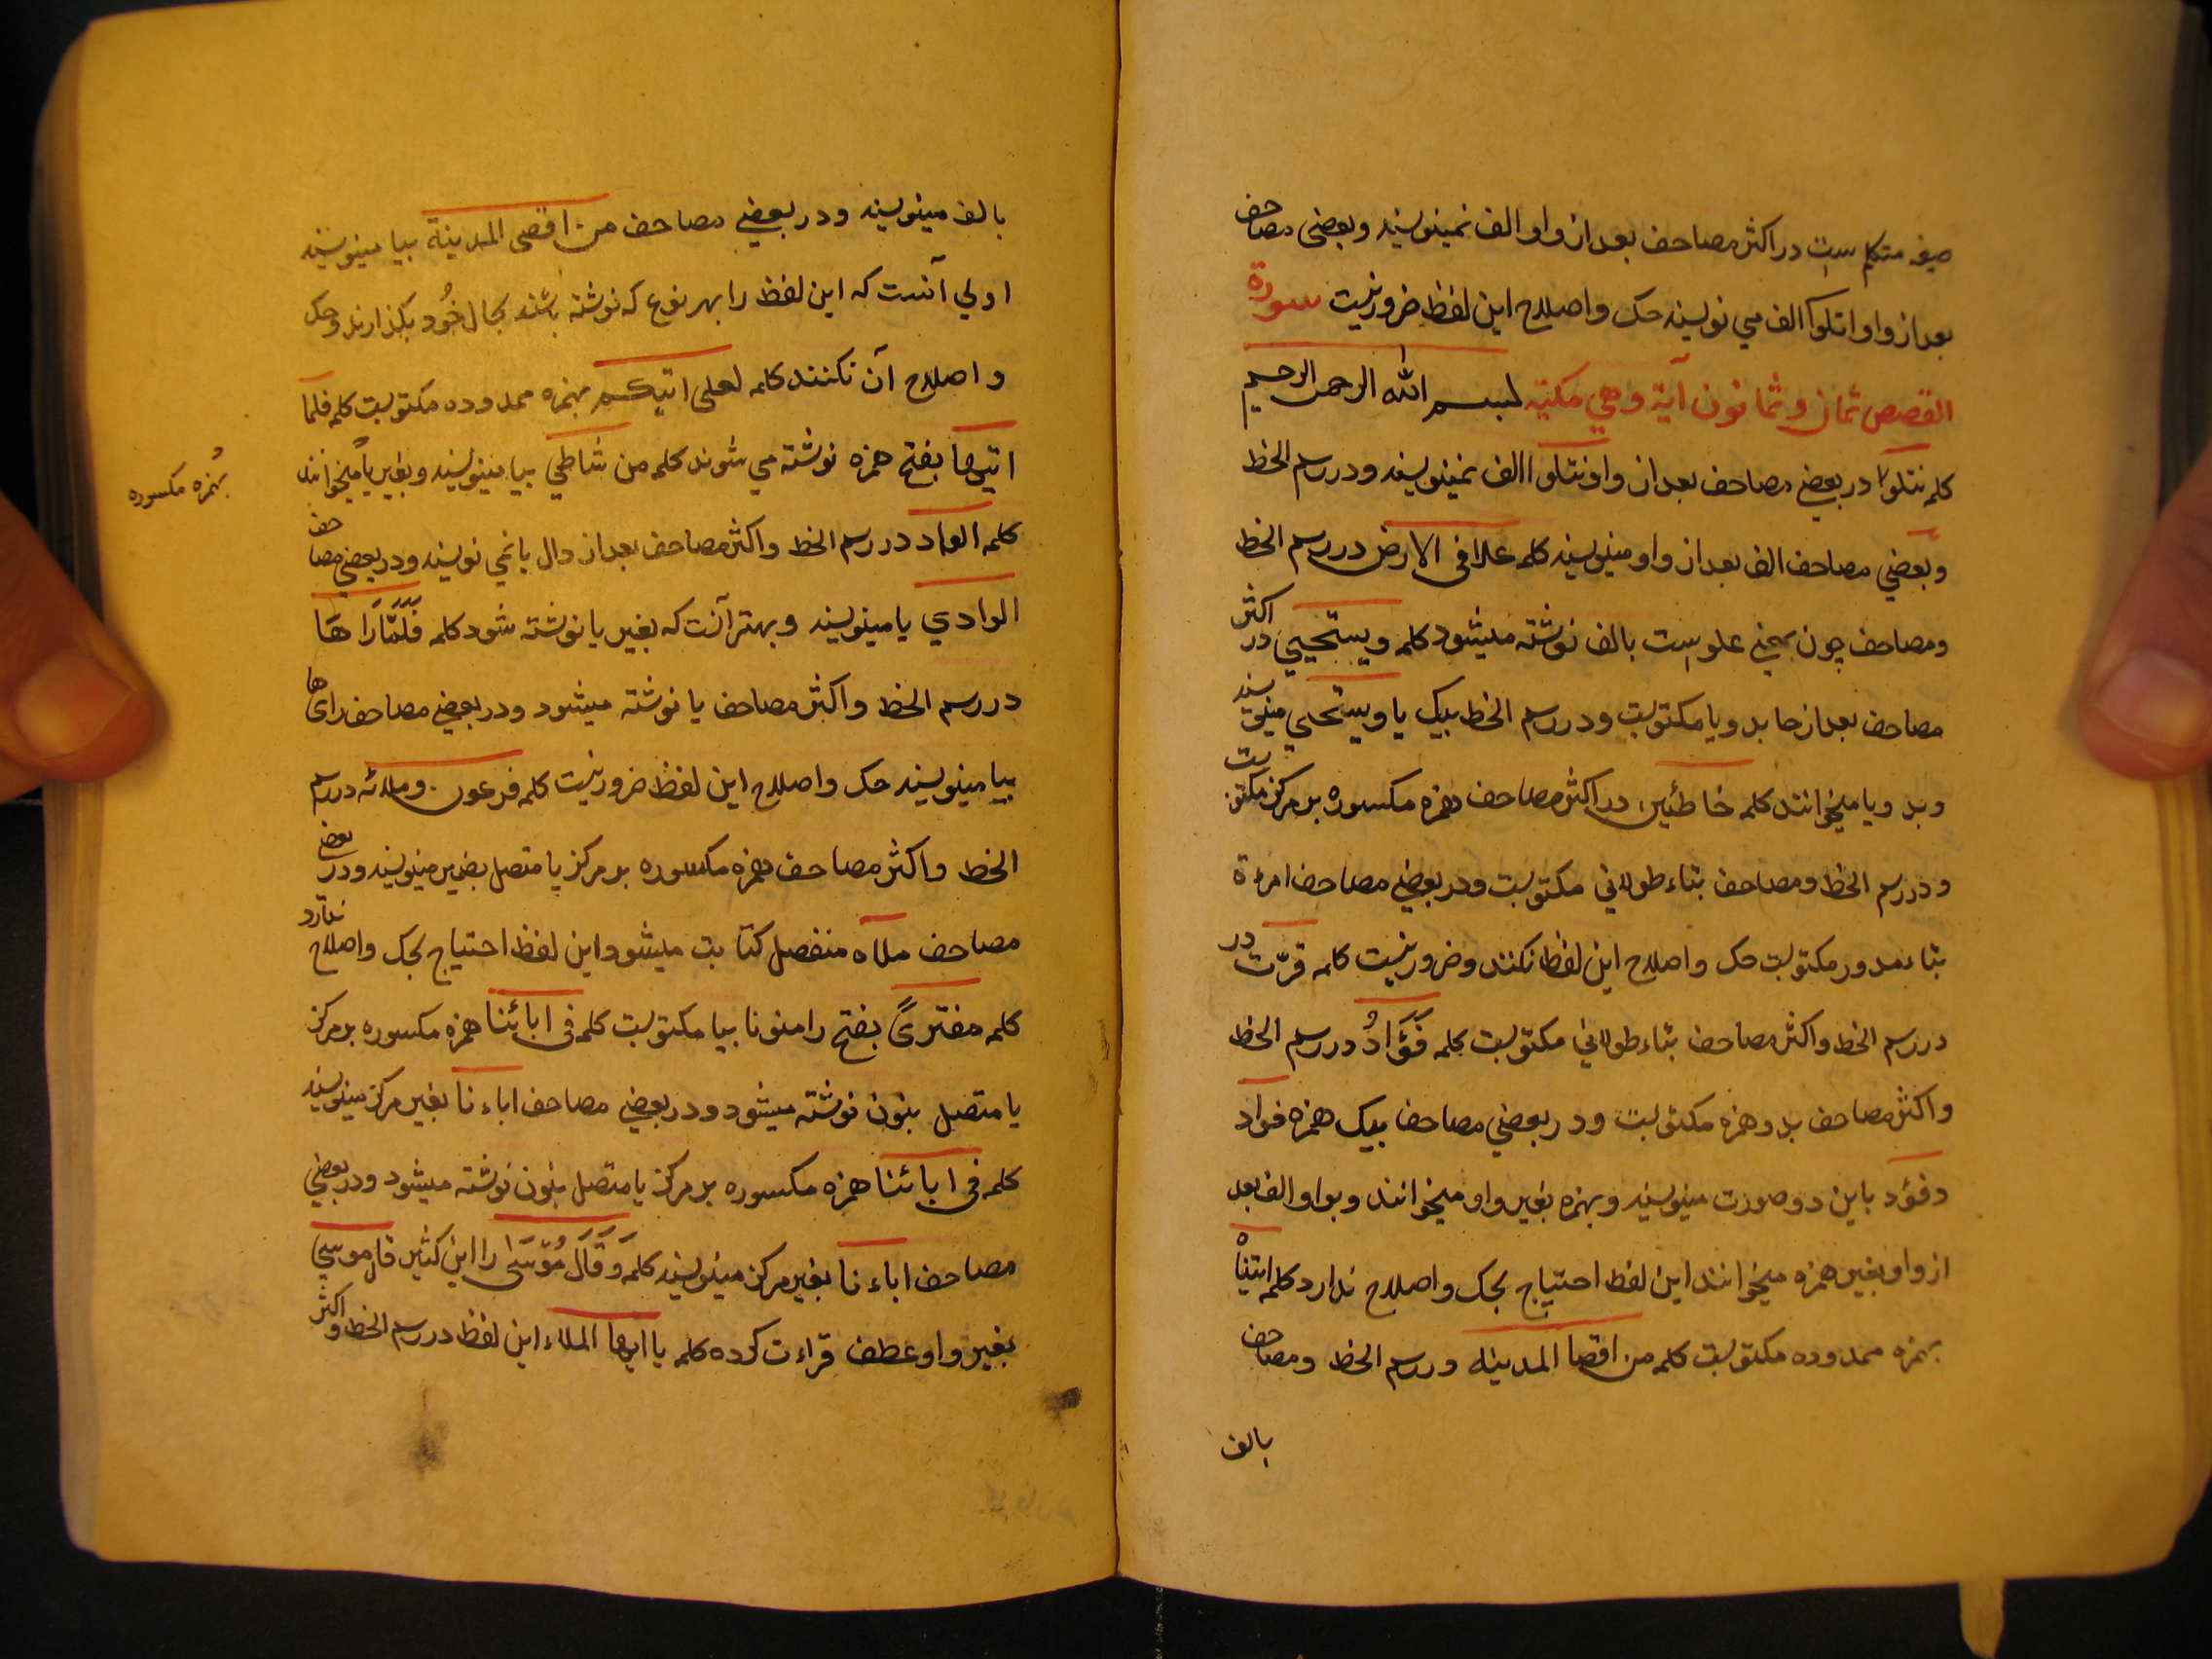 صیغه متکلم است در اکثر مصاحف بعد از واو الف نمینویسند و بعضی مصاحف
بعد از واو اتلوا الف می نویسند حک و اصلاح این لفظ ضرور نیست سورة
القصص ثمان و ثمانون آیة وهي مکیة بسم الله الرحمن الرحیم
کلمه نتلوا در بعضی مصاحف بعد از واو نتلوا الف نمینویسند و در رسم الخط
و بعضی مصاحف الف بعد از واو مینویسند کلمه علا فی الارض در رسم الخط
و مصاحف چون بمعنی علو است بالف نوشته میشود کلمه ویستحیي در اکثر
مصاحف بعد از حا بدو یا مکتوبست و در رسم الخط بیک یا ویستحي مینویسند
و بدو یا میخوانند کلمه خاطئین در اکثر مصاحف همزه مکسوره بر مرکز مکتوبست
و در رسم الخط و مصاحف بتاء طولانی مکتوبست و در بعضی مصاحف امرءة
بتاء مدور مکتوبست حک و اصلاح این لفظ نکنند و ضرور نیست کلمه قرّت در
در رسم الخط و اکثر مصاحف بتاء طولانی مکتوبست کلمه فَؤَادُ در رسم الخط
و اکثر مصاحف بدو همزه مکتوبست و در بعضی مصاحف بیک همزه فواد
و فؤد باین دو صورت مینویسند و بهمزه بغیر واو میخوانند و بواو الف بعد
از واو بغیر همزه میخوانند این لفظ احتیاج بحک و اصلاح ندارد کلمه اتیناه
بهمزه ممدوده مکتوبست کلمه من اقصا المدینه در رسم الخط و مصاحف
بالف
بالف مینویسند و در بعضی مصاحف من اقصی المدینة بیا مینویسند
اولی آنست که این لفظ را بهر نوع که نوشته باشند بحال خُود بکذارند و حک
و اصلاح آن نکنند کلمه لعلی اتیکم بهمزه ممدوده مکتوبست کلمه فلما
اتیها بفتح همزه نوشته می شوند کلمه من شاطي بیا مینویسند و بغیر یا میخوانند
بهمزه مکسوره
کلمه الواد در رسم الخط و اکثر مصاحف بعد از دال یا نمی نویسند و در بعضی مصاحف
الوادي یا مینویسند و بهتر آنست که بغیر یا نوشته شود کلمه فَلَمَّا رَاهَا
در رسم الخط و اکثر مصاحف یا نوشته میشود و در بعضی مصاحف رایها
بیا مینویسند حک و اصلاح این لفظ ضرور نیست کلمه فرعون و ملائه در رسم
الخط و اکثر مصاحف همزه مکسوره بر مرکز یا متصل بضمیر مینویسند و در بعضی
مصاحف ملاه منفصل کتابت میشود و این لفظ احتیاج بحک و اصلاح ندارد
کلمه مفتریً بفتح را منونا بیا مکتوبست کلمه فی ابائنا همزه مکسوره بر مرکز
یا متصل بنون نوشته میشود و در بعضی مصاحف اباءنا بغیر مرکز مینویسند
کلمه فی ابائنا همزه مکسوره بر مرکز یا متصل بنون نوشته میشود و در بعضی
مصاحف اباءنا بغیر مرکز مینویسند کلمه وَقَالَ مُوْسَی را ابن کثیر قال موسی
بغیر واو عطف قراءت کرده کلمه یا ایها الملاء این لفظ در رسم الخط و اکثر